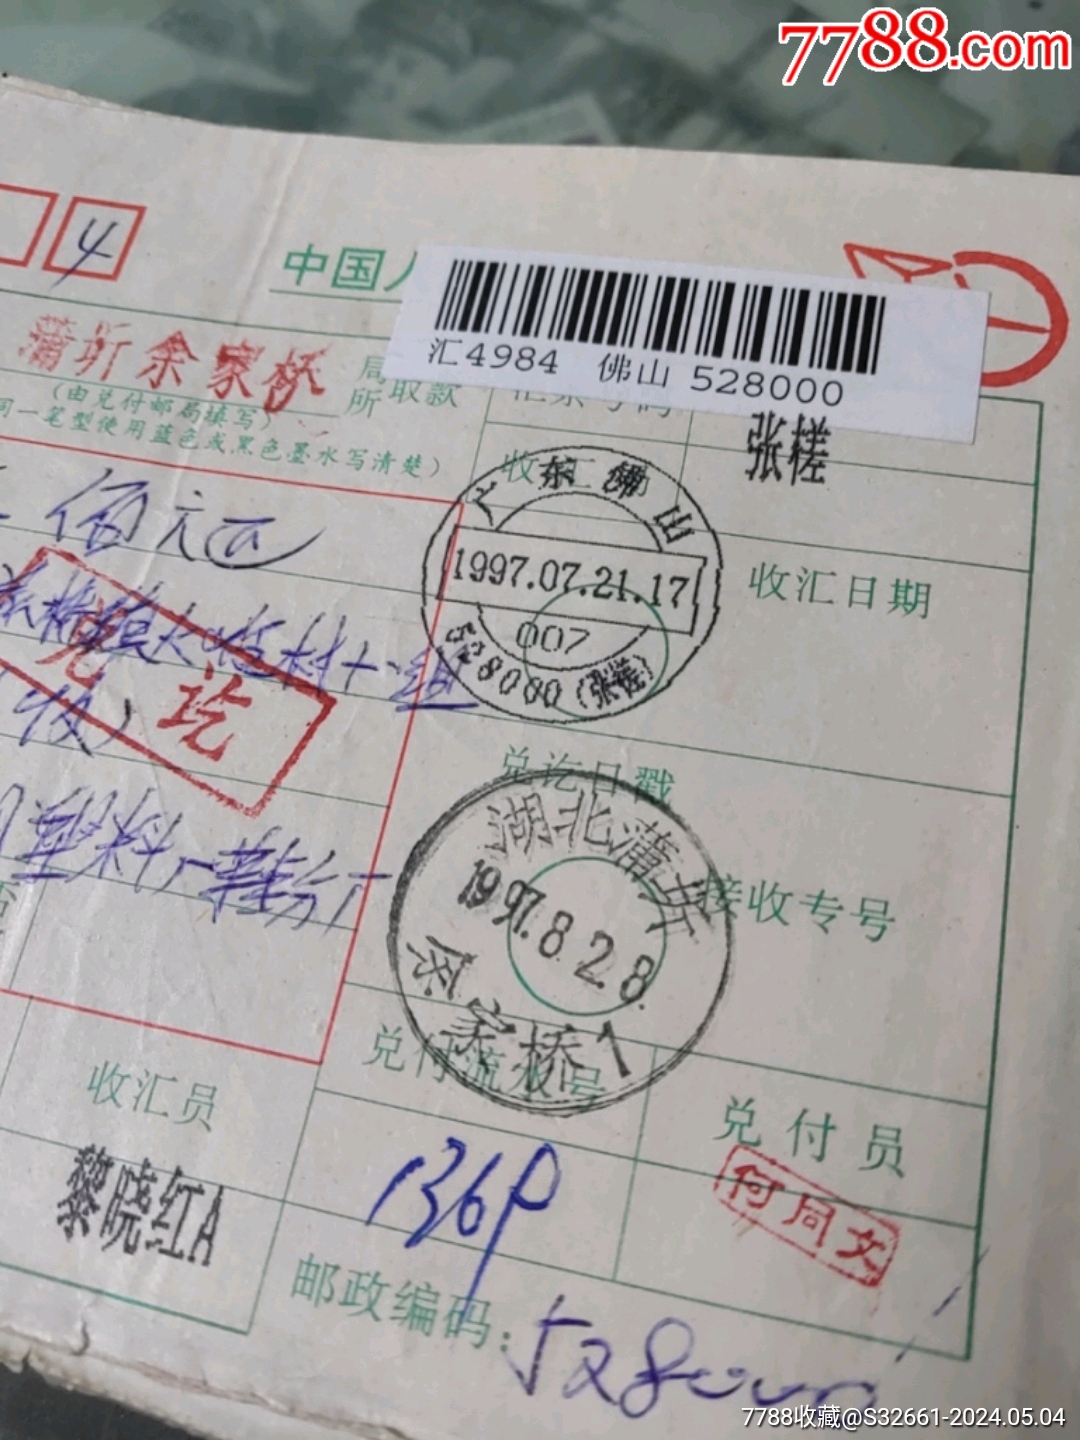 7788.com
4
中国人
汇4984 佛山 528000
蒲圻余家桥
局
所
取款
(由兑付邮局填写)
同一笔型使用蓝色或黑色墨水写清楚)
张槎
收汇
广东佛山
1997.07.21.17
007
528000(张槎)
收汇日期
佰元正
村十一组
兑讫
兑讫日戳
湖北蒲圻
1997.8.28.
余家桥1
接收专号
塑料厂鞋分厂
收汇员
黎晓红A
兑付流水号
兑付员
何同文
邮政编码:528000
7788收藏@S32661-2024.05.04